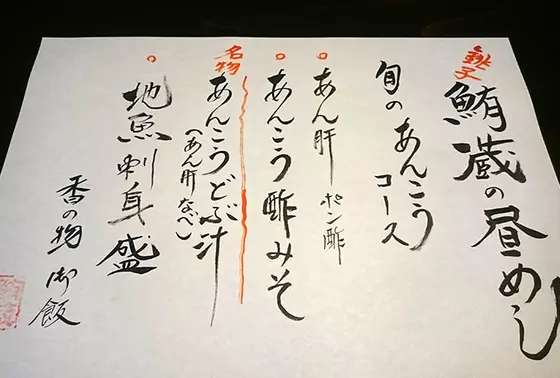 銚子
鮪蔵の昼めし
旬のあんこう
コース
あん肝 ポン酢
あんこう酢みそ
名物
あんこうどぶ汁
(あん肝なべ)
地魚刺身盛
香の物 御飯